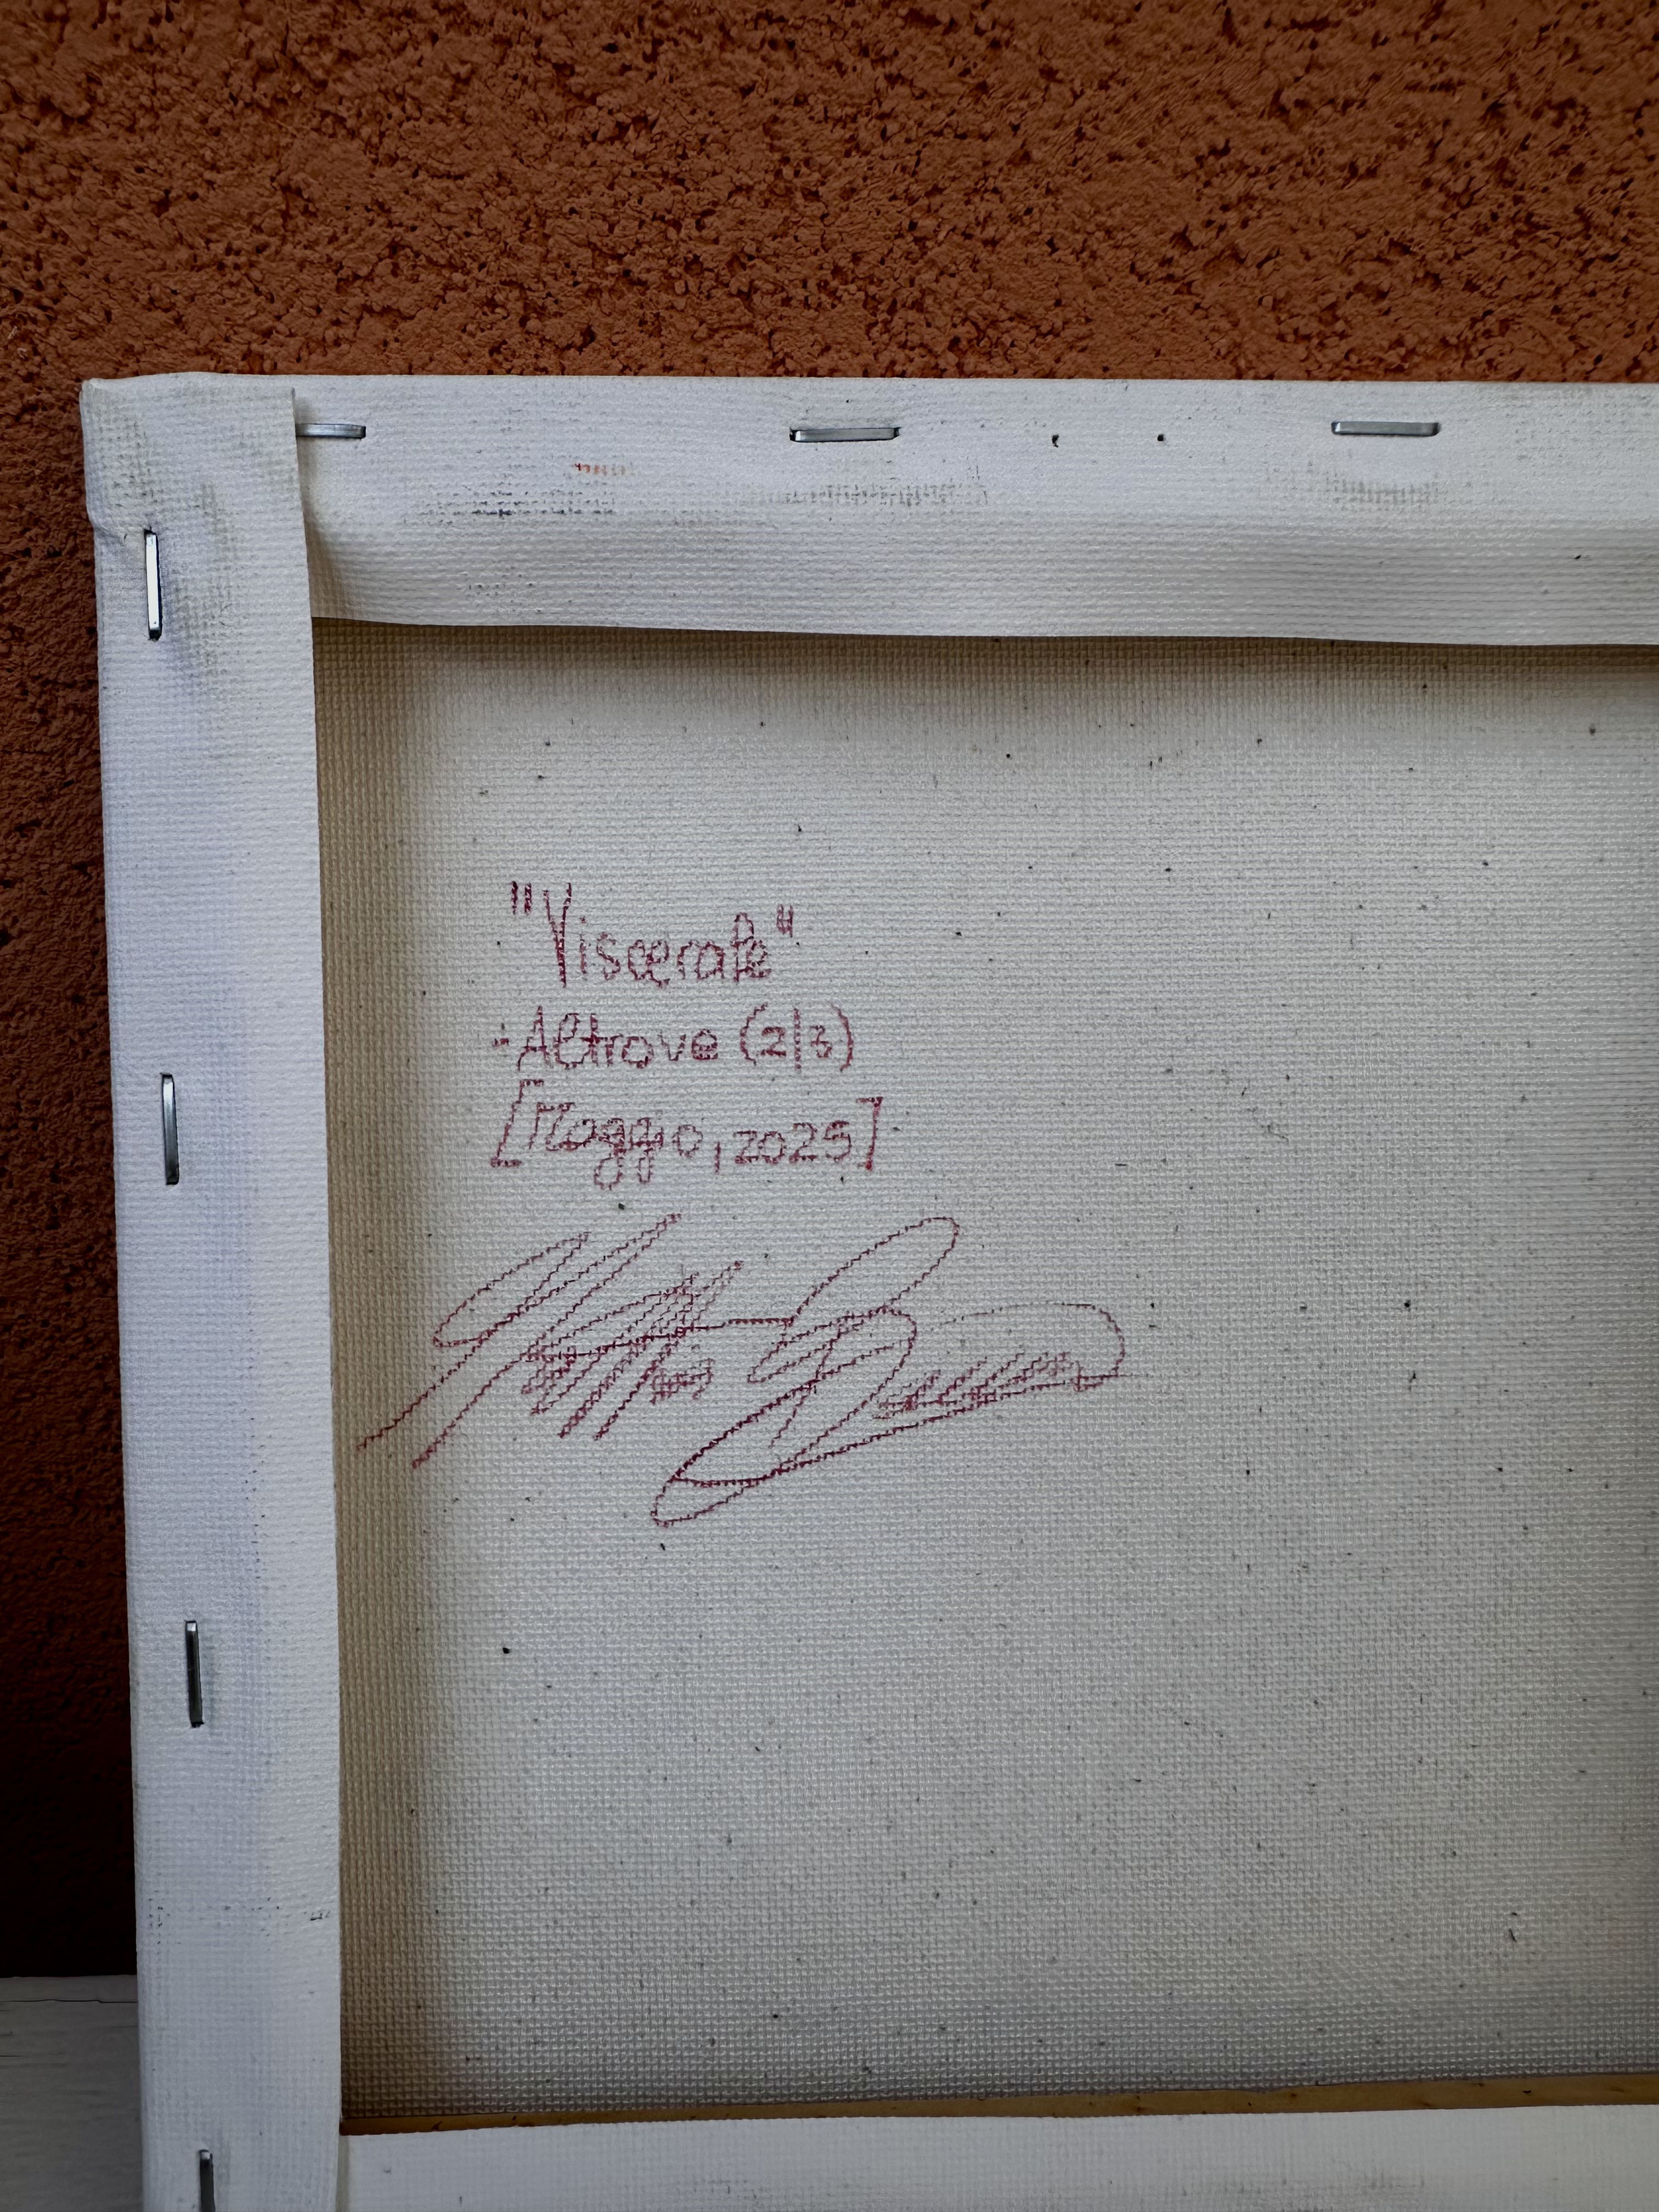 "Viscerale"
-Altrove (2|3)
[Maggio, 2025]